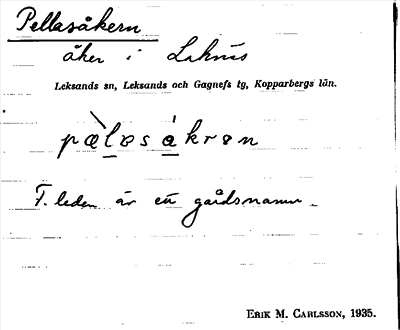 Pellasåkern
åker i Laknäs
Leksands sn, Leksands och Gagnefs tg, Kopparbergs län.
pæ̀l̲ɐsa̲̍krɐn
F. leden är ett gårdsnamn.
Erik M. Carlsson, 1935.